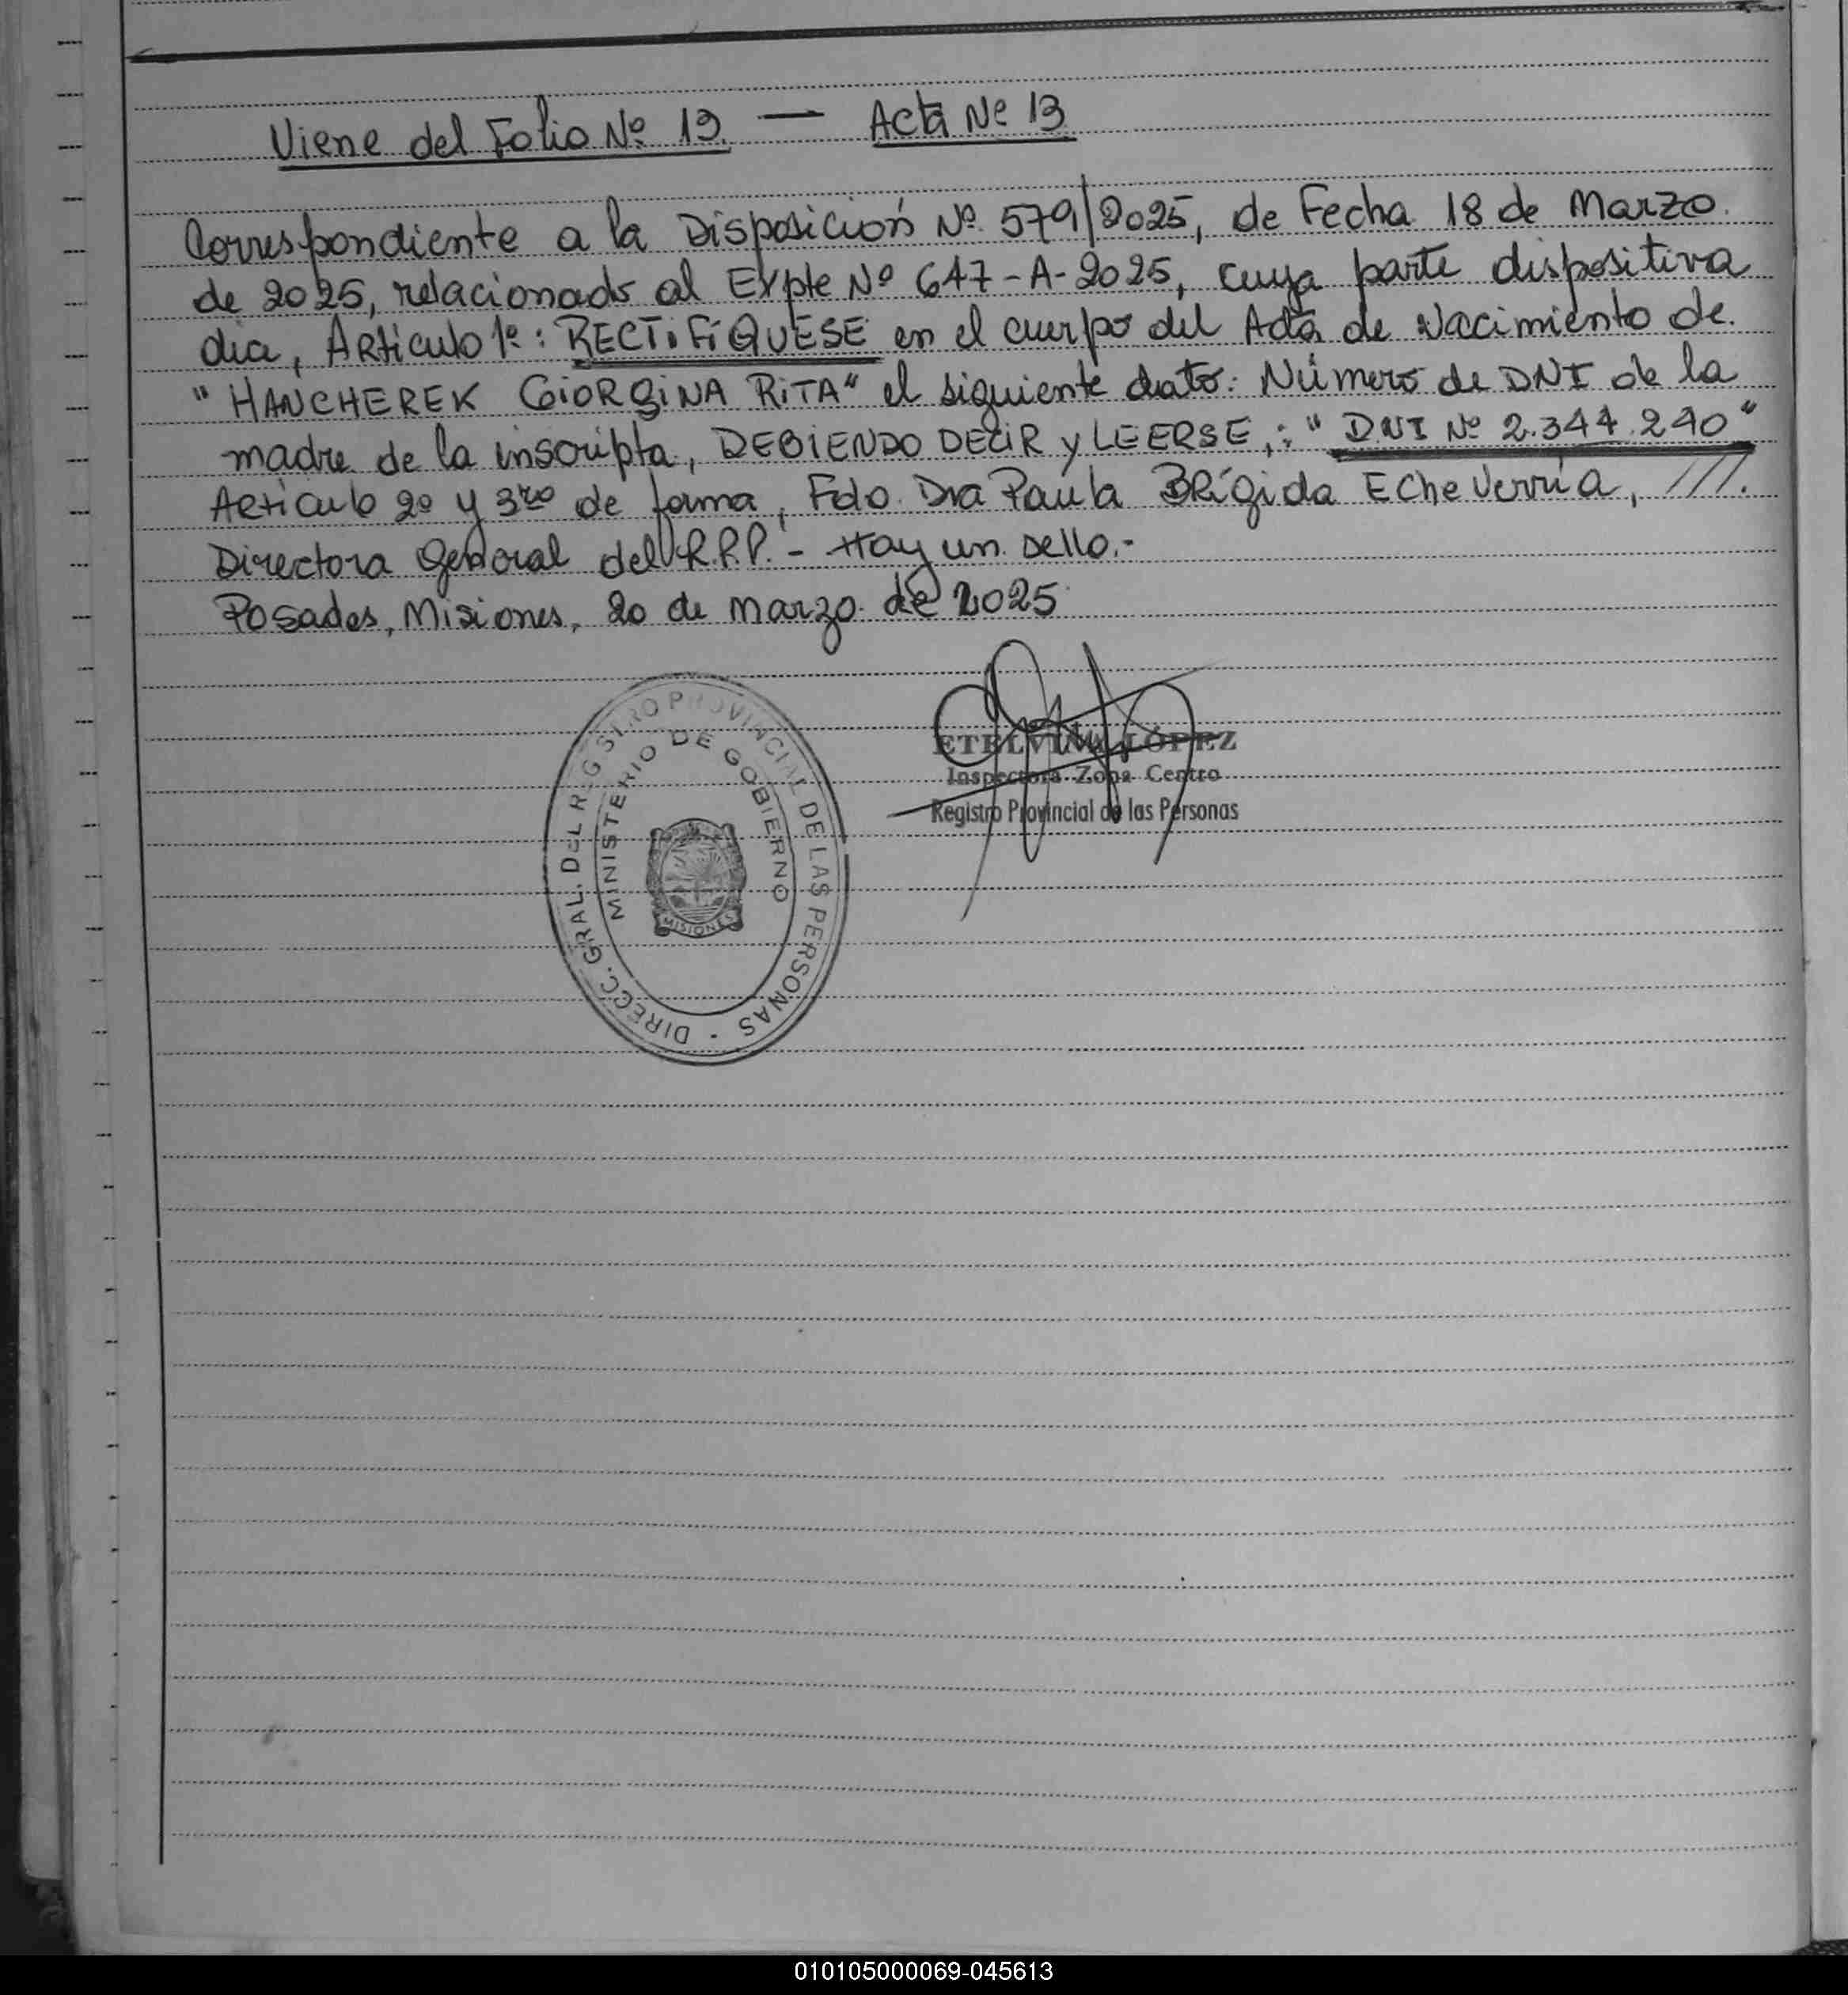 Viene del Folio Nº 13. — Acta Nº 13
Correspondiente a la Disposición Nº 579/2025, de Fecha 18 de Marzo.
de 2025, relacionado al Expte Nº 647-A-2025, cuya parte dispositiva
dice, Artículo 1º: RECTIFÍQUESE en el cuerpo del Acta de Nacimiento de.
"HANCHEREK GIORGINA RITA" el siguiente dato: Número de DNI de la
madre de la inscripta, DEBIENDO DECIR y LEERSE,: "DNI Nº 2.344.290"
Artículo 2º y 3ro de forma, Fdo. Dra Paula BRígida Echeverría, ///.
Directora General del R.P.P. - Hay un sello.-
Posadas, Misiones, 20 de marzo de 2025
DIRECC. GRAL. DEL REGISTRO PROVINCIAL DE LAS PERSONAS -
MINISTERIO DE GOBIERNO
MISIONES
ETELVINA LÓPEZ
Inspectora Zona Centro
Registro Provincial de las Personas
010105000069-045613